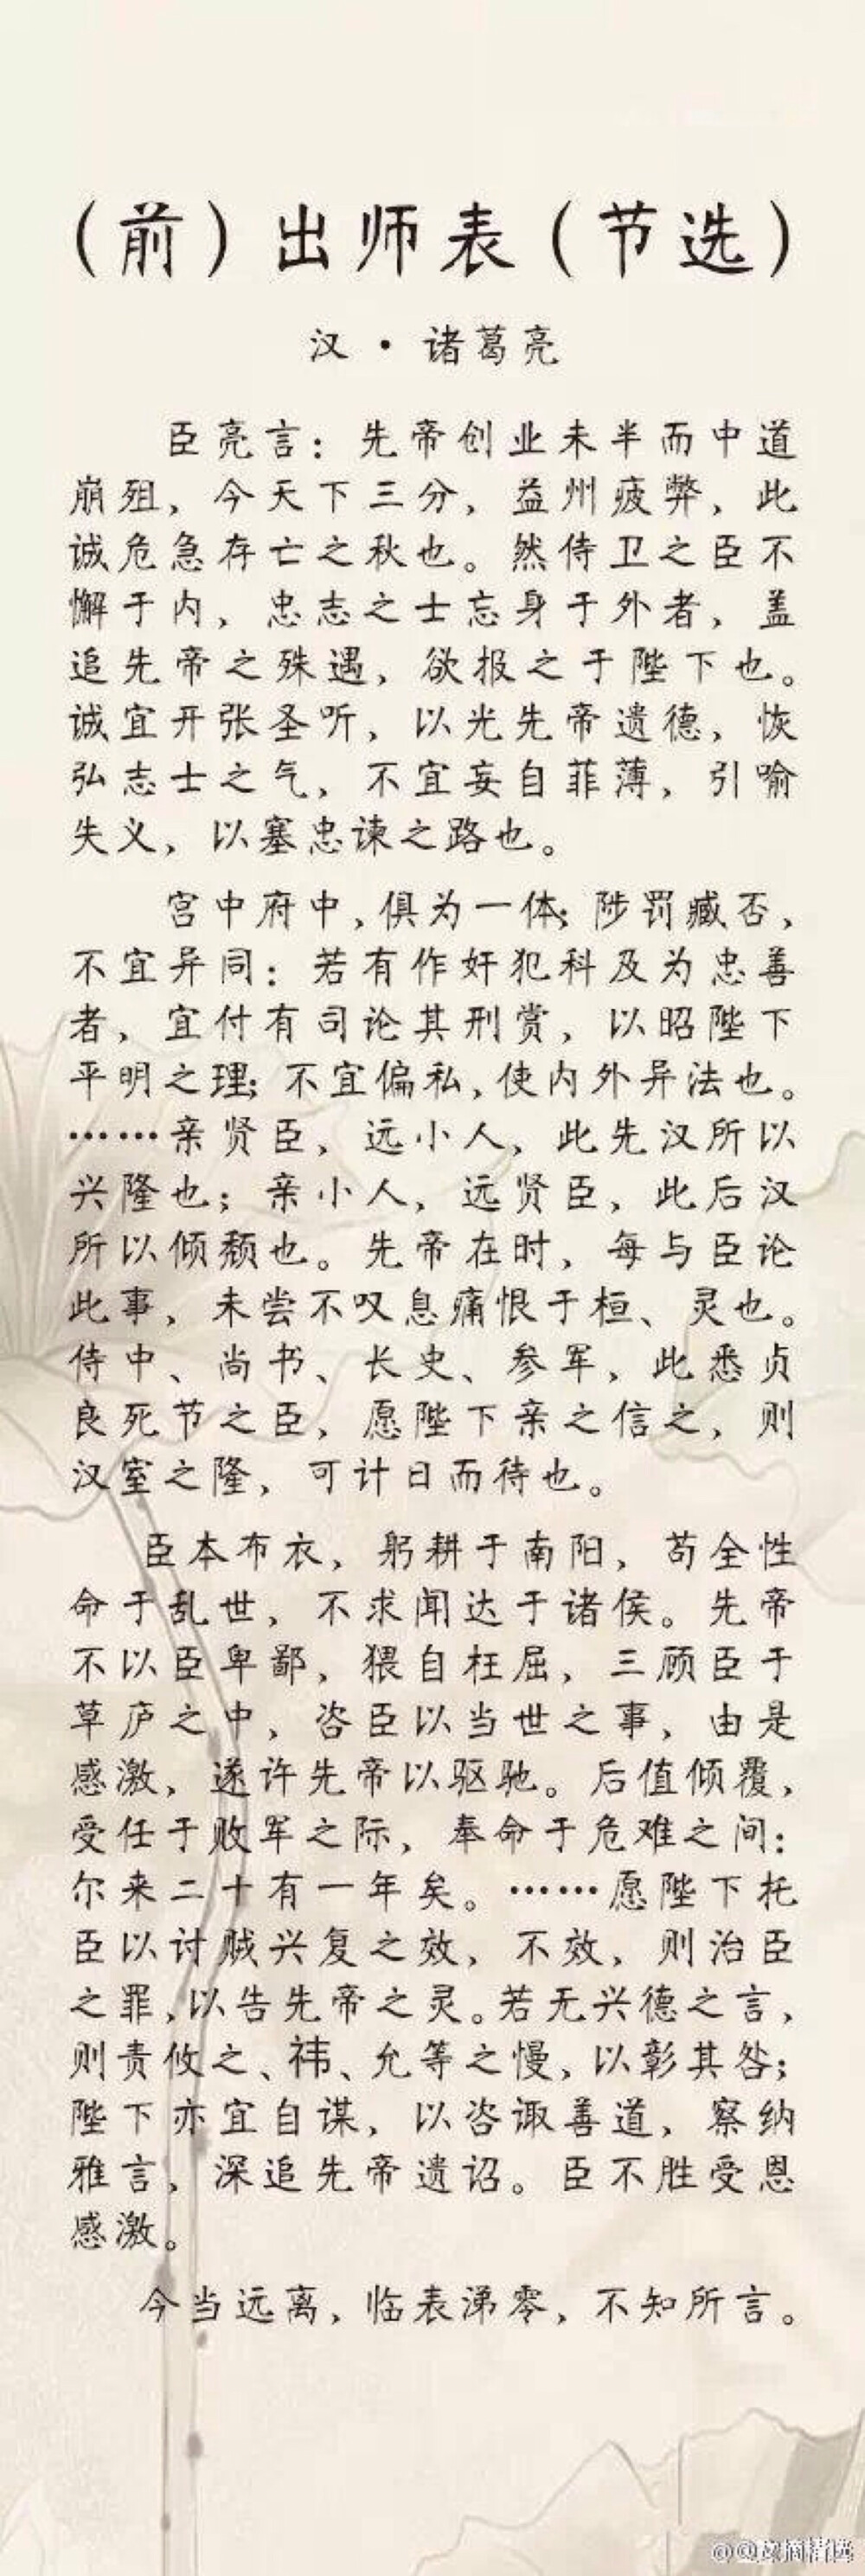 （前）出师表（节选）
汉·诸葛亮
臣亮言：先帝创业未半而中道
崩殂，今天下三分，益州疲弊，此
诚危急存亡之秋也。然侍卫之臣不
懈于内，忠志之士忘身于外者，盖
追先帝之殊遇，欲报之于陛下也。
诚宜开张圣听，以光先帝遗德，恢
弘志士之气，不宜妄自菲薄，引喻
失义，以塞忠谏之路也。
宫中府中，俱为一体；陟罚臧否，
不宜异同：若有作奸犯科及为忠善
者，宜付有司论其刑赏，以昭陛下
平明之理；不宜偏私，使内外异法也。
……亲贤臣，远小人，此先汉所以
兴隆也；亲小人，远贤臣，此后汉
所以倾颓也。先帝在时，每与臣论
此事，未尝不叹息痛恨于桓、灵也。
侍中、尚书、长史、参军，此悉贞
良死节之臣，愿陛下亲之信之，则
汉室之隆，可计日而待也。
臣本布衣，躬耕于南阳，苟全性
命于乱世，不求闻达于诸侯。先帝
不以臣卑鄙，猥自枉屈，三顾臣于
草庐之中，咨臣以当世之事，由是
感激，遂许先帝以驱驰。后值倾覆，
受任于败军之际，奉命于危难之间：
尔来二十有一年矣。……愿陛下托
臣以讨贼兴复之效，不效，则治臣
之罪，以告先帝之灵。若无兴德之言，
则责攸之、祎、允等之慢，以彰其咎；
陛下亦宜自谋，以咨诹善道，察纳
雅言，深追先帝遗诏。臣不胜受恩
感激。
今当远离，临表涕零，不知所言。
@@文摘精选